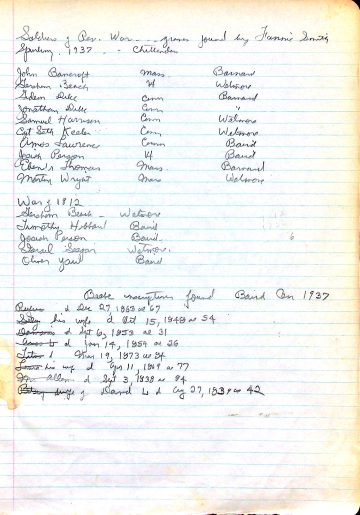 Soldiers of Rev. War --- graves found by Fannie Smith
Spurling 1937 -- Chittenden
John Bancroft Mass. Barnard
Gershom Beach Vt Wetmore
Conn Barnard
Jonathan Dike Conn "
Samuel Harrison Conn Wetmore
Capt Seth Keeler Conn Wetmore
Amos Lawrence Conn Baird
Josiah Parsons Vt Baird
Eben'r Thomas Mass. Barnard
Wright Mass Wetmore
War of 1812
Gershom Beach - Wetmore
Timothy Hibbard Baird
Josiah Person Baird
Wetmore
Oliver Baird
Beebe inscriptions found Baird Cem 1937
Rufus d Dec 27, 1863 ae 67
his wife d Oct 15, 1848 ae 54
d Spt 6, 1853 ae 31
d Jan 14, 1854 ae 26
d Mar 19, 1873 ae 84
his wf d Apr 11, 1869 ae 77
Allen d Sept 3, 1838 ae 84
wife of David L d Aug 27, 1839 ae 42